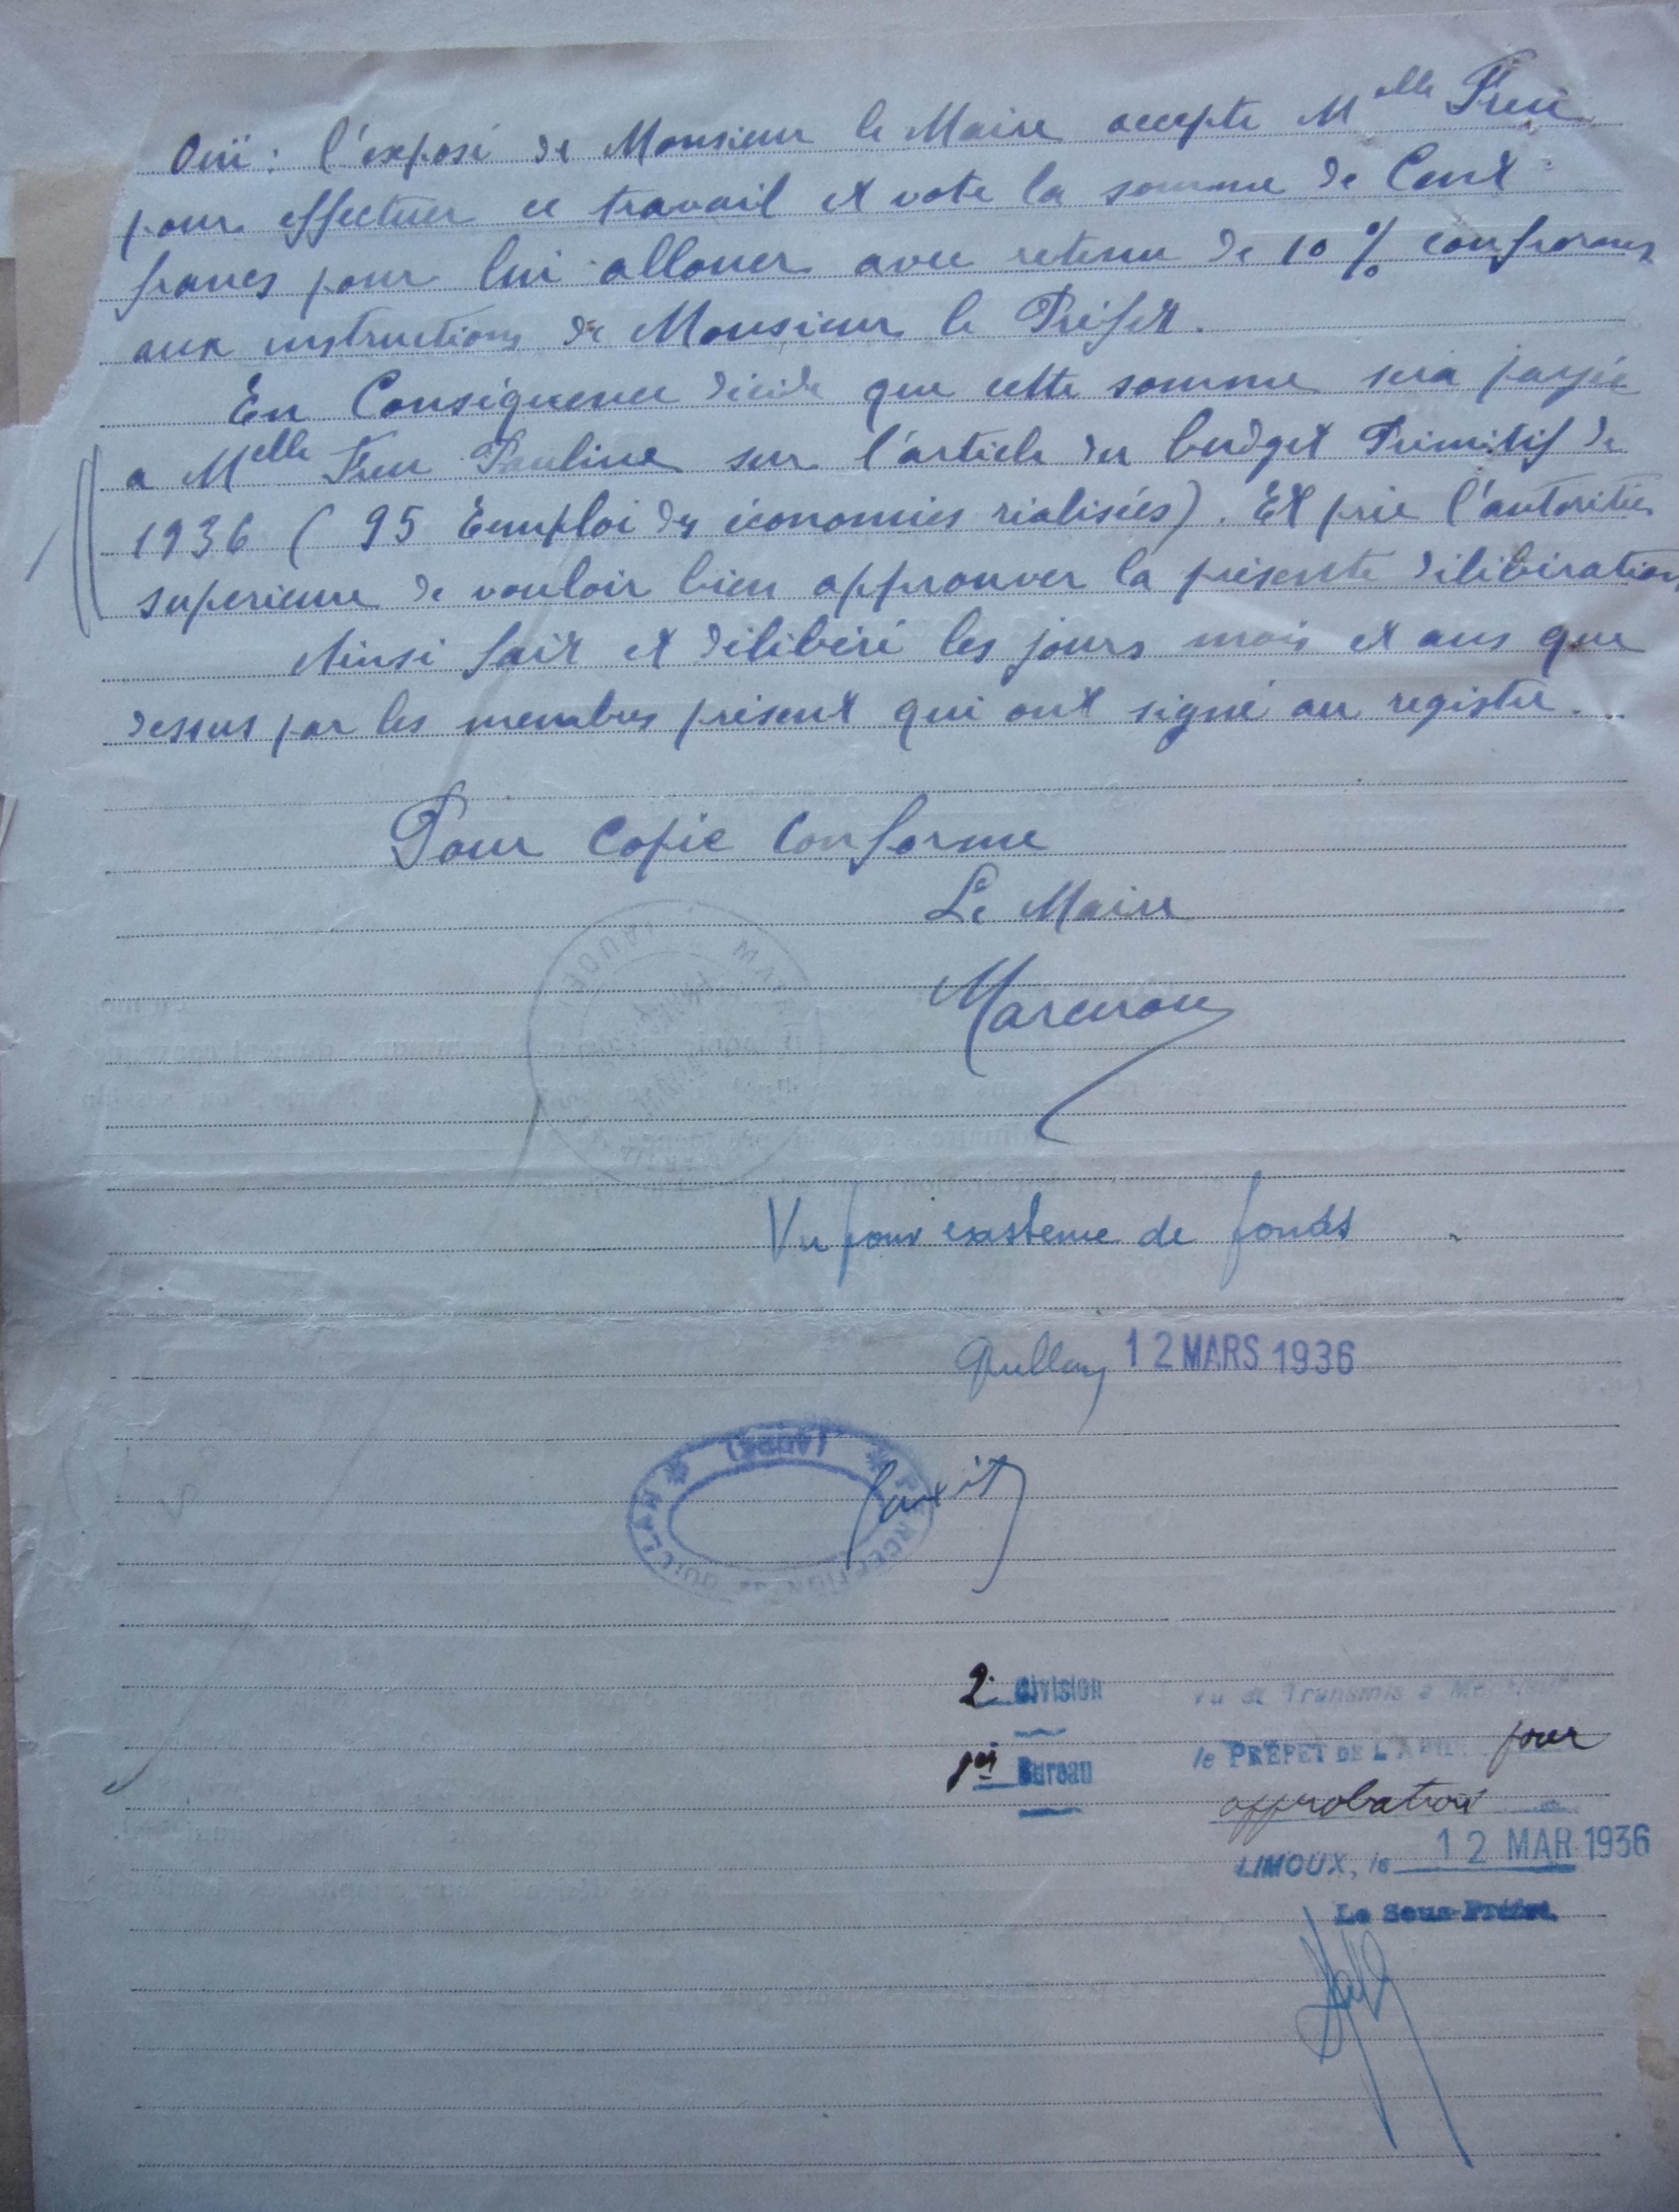 Ouï: l'exposé de Monsieur le Maire accepte Melle Freu
pour effectuer ce travail et vote la somme de Cent
francs pour lui allouer avec retenu de 10%
aux instructions de Monsieur le Préfet.
En Conséquence décide que cette somme sera payée
a Melle Freu Pauline sur l'article du budget Primitif de
1936 (95 Emploi des économies réalisées). Et prie l'autorités
superieure de vouloir bien approuver la présente délibération
Ainsi fait et délibéré les jours mois et ans que
dessus par les membres présent qui ont signé au registre.
Pour Copie Conforme
Le Maire
Vu pour existence de fonds
Quillan, 12 MARS 1936
PERCEPTION DE QUILLAN (AUDE)
2e Division Vu et Transmis à
1er Bureau le PRÉFET DE L'AUDE pour
approbation
LIMOUX, le 12 MAR 1936
Le Sous-Préfet,